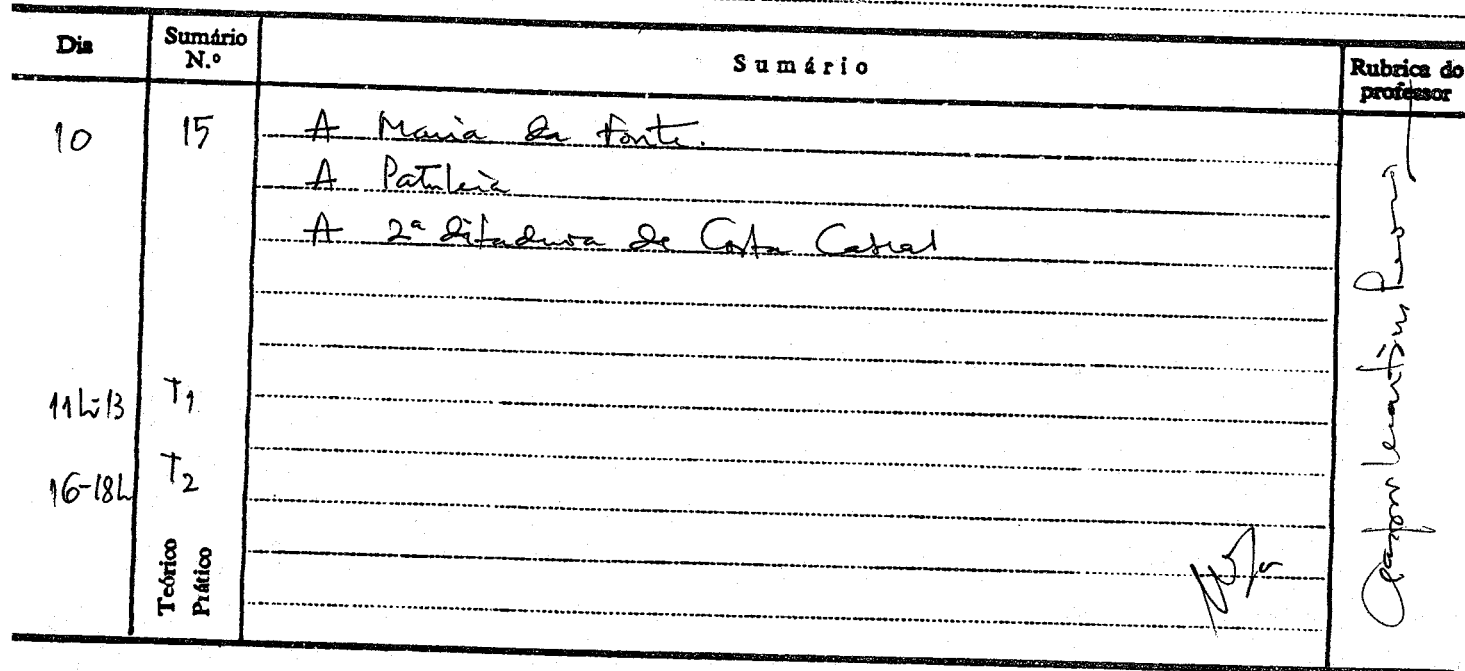 Dia Sumário N.º Sumário Rubrica do professor
10 15 A Maria da Fonte.
A Patuleia
A 2ª ditadura de Costa Cabral
11h-13 T1
16-18h T2
Teórico Prático